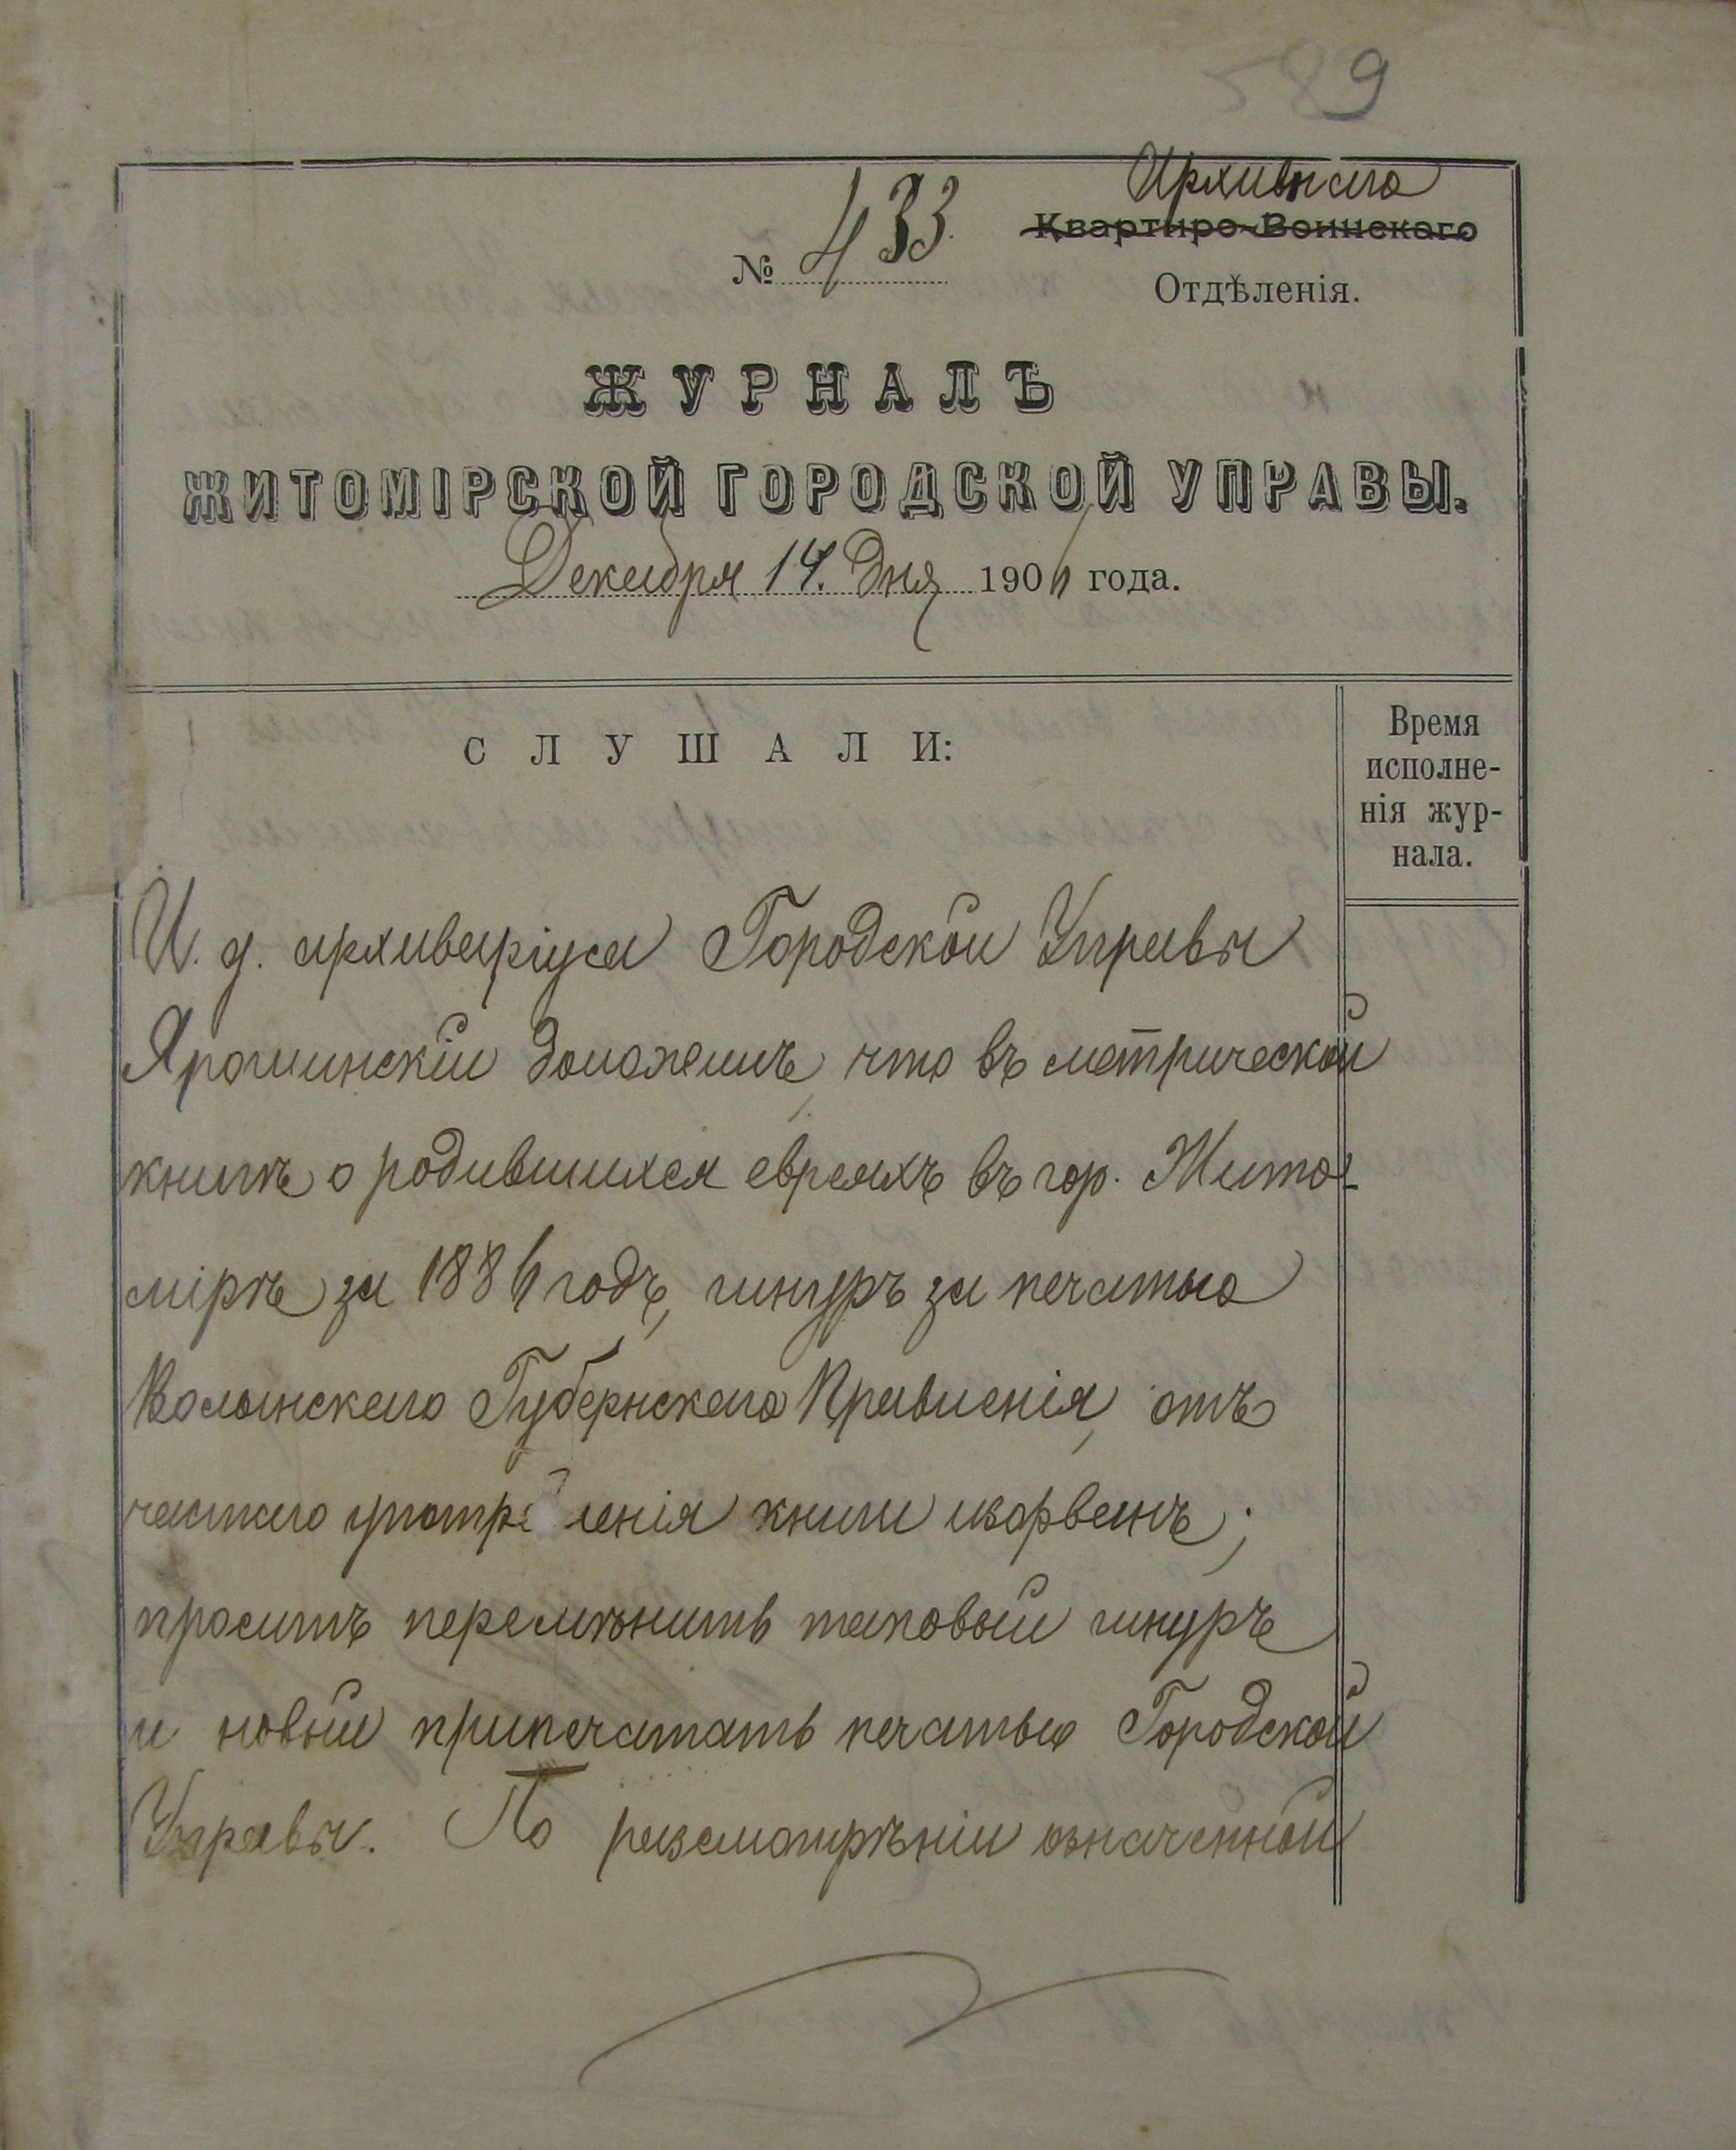 589
Архивнаго
№ 433.
Квартиро-Воинскаго
Отдѣленія.
ЖУРНАЛЪ
ЖИТОМІРСКОЙ ГОРОДСКОЙ УПРАВЫ.
Декабря 14. дня 1906 года.
СЛУШАЛИ:
Время
исполне-
нія жур-
нала.
И. д. архиваріуса Городской Управы
доложилъ, что въ метрической
книгѣ о родившихся евреяхъ въ гор. Жито-
мірѣ за 1886 годъ, шнуръ за печатью
Волынскаго Губернскаго Правленія, отъ
частаго употребленія книги изорванъ;
проситъ перемѣнить таковый шнуръ
и новый припечатать печатью Городской
Управы. По разсмотрѣніи означенной